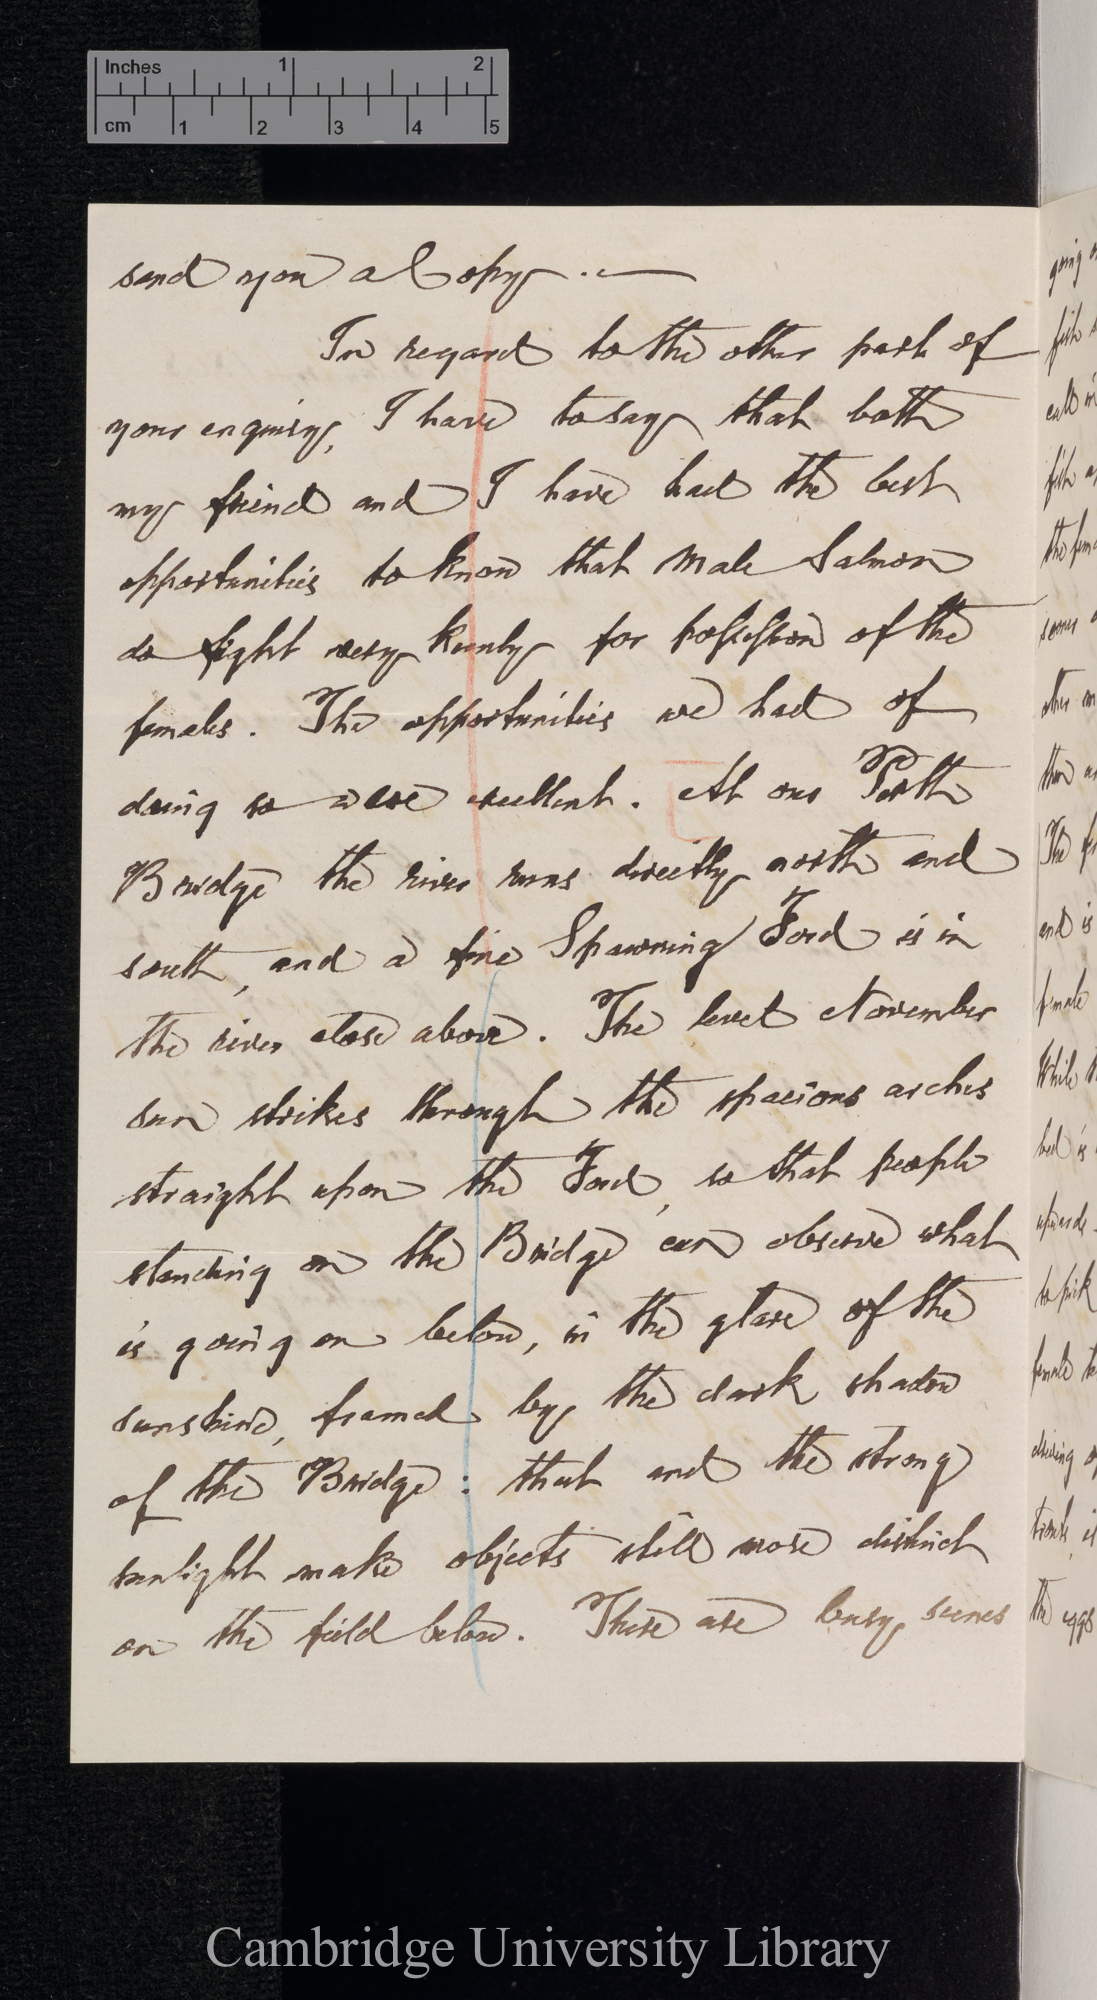 Inches 1 2
cm 1 2 3 4 5
send you a Copy . —
In regard to the other part of
your enquiry, I have to say that both
my friend and I have had the best
opportunities to know that Male Salmon
do fight very keenly for possession of the
females. The opportunities we had of
doing so were excellent. At our Perth
Bridge the river runs directly north and
south, and a fine Spawning Ford is in
the river close above. The level November
sun strikes through the spacious arches
straight upon the Ford, so that people
standing on the Bridge can observe what
is going on below, in the glare of the
sunshine, framed by the dark shadow
of the Bridge: that and the strong
sunlight make objects still more distinct
on the field below. There are busy scenes
going
fish
the fem
other
The
end is
female
While
bed is
upwards
to pick
female
driving
trout, is
the eggs
Cambridge University Library